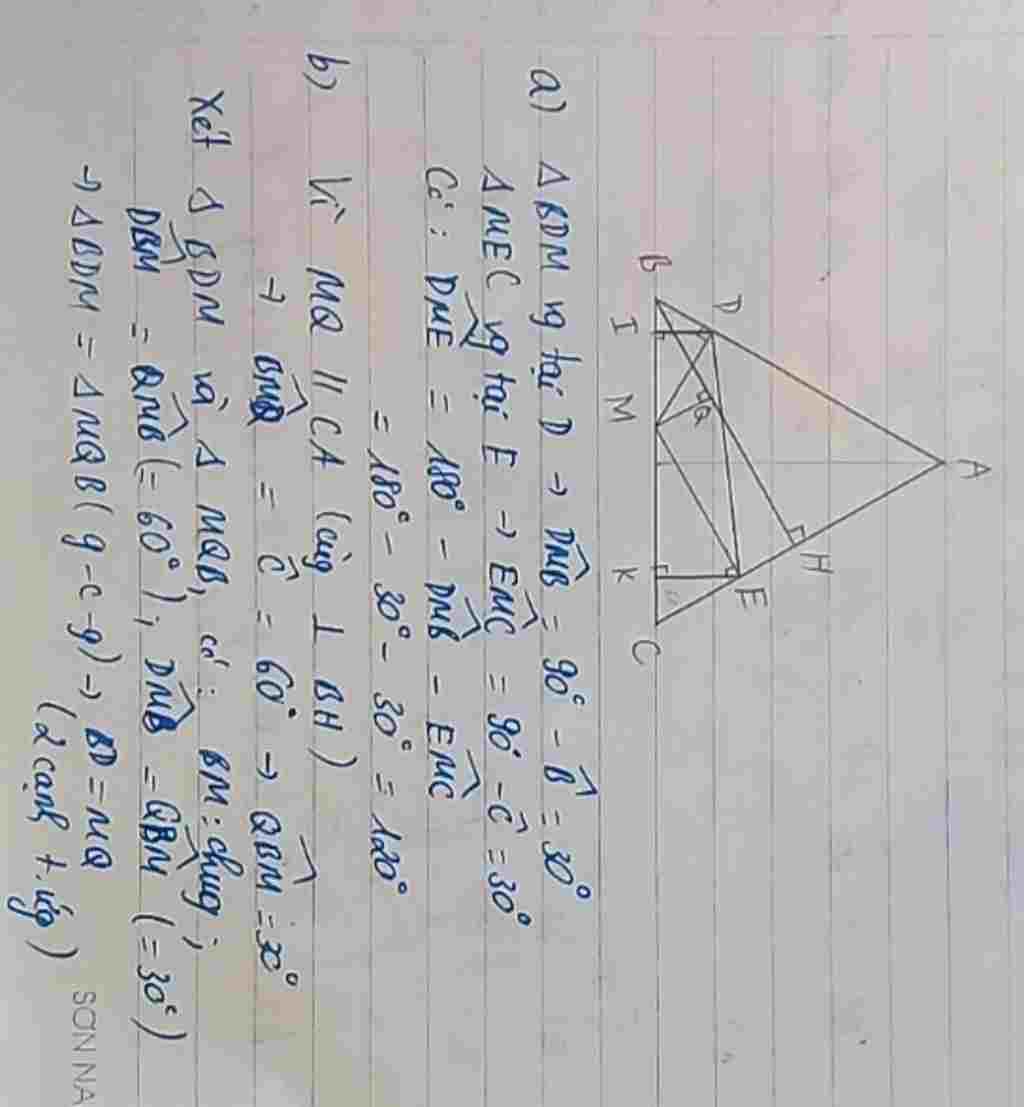 A
B
D
I
Q
M
H
E
K
C
a) Δ BDM vg tại D → $\widehat{DMB}$ = 90° - $\widehat{B}$ = 30°
Δ MEC vg tại E → $\widehat{EMC}$ = 90° - $\widehat{C}$ = 30°
Có: $\widehat{DME}$ = 180° - $\widehat{DMB}$ - $\widehat{EMC}$
= 180° - 30° - 30° = 120°
b) Vì MQ // CA (cùng ⊥ BH)
→ $\widehat{BMQ}$ = $\widehat{C}$ = 60° → $\widehat{QBM}$ = 30°
Xét Δ BDM và Δ MQB, có: BM: chug;
$\widehat{DBM}$ = $\widehat{QMB}$ (= 60°); $\widehat{DMB}$ = $\widehat{QBM}$ (= 30°)
→ Δ BDM = Δ MQB (g-c-g) → BD = MQ
(2 cạnh t.ứg)
SƠN NA